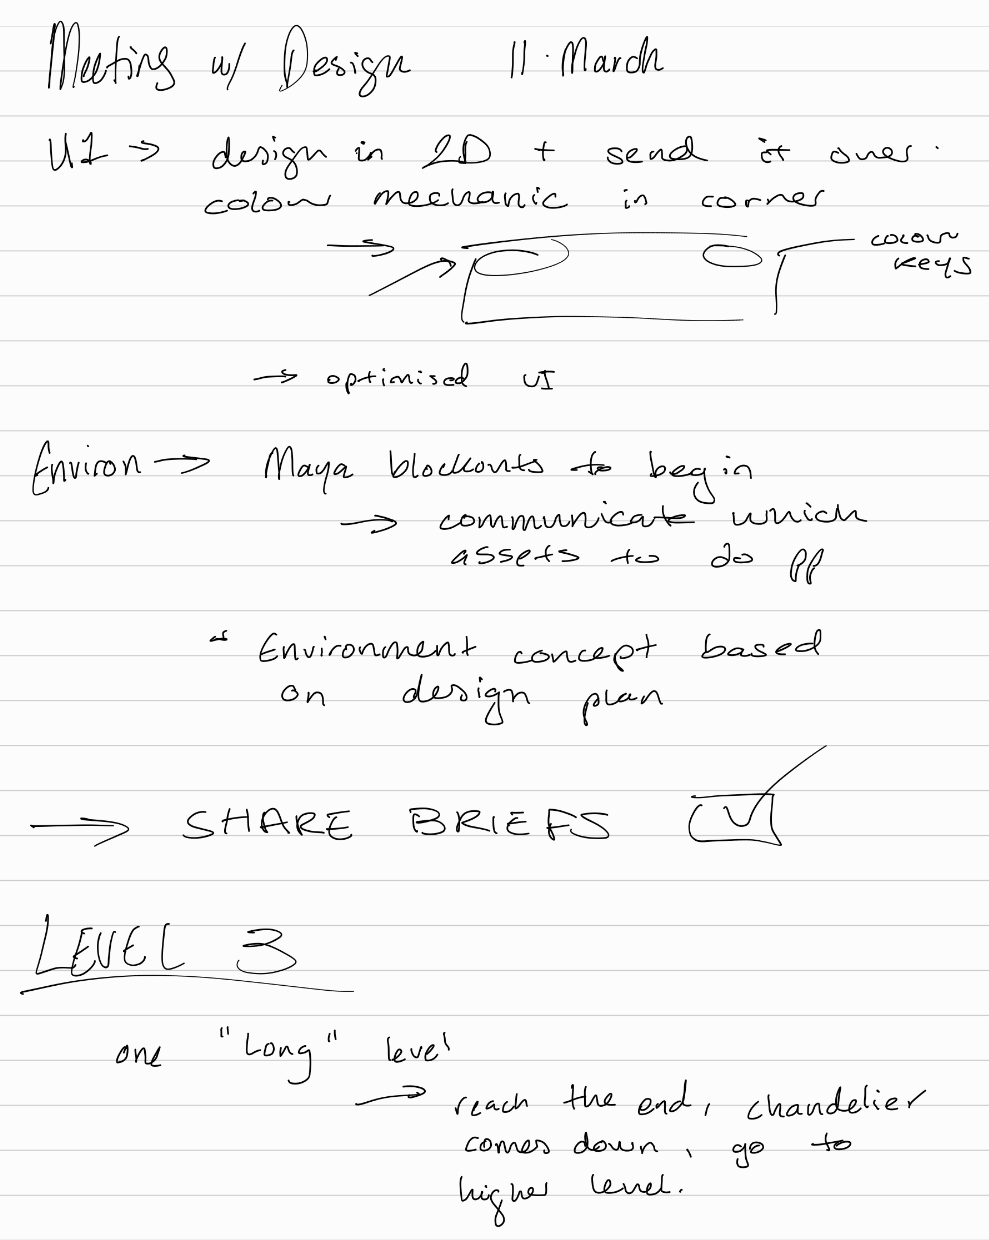 Meeting w/ Design 11 · March
UI → design in 2D + send it over.
colour mechanic in corner
colour
keys
→ optimised UI
Environ → Maya blockouts to begin
→ communicate which
assets to do pp
" Environment concept based
on design plan
→ SHARE BRIEFS
LEVEL 3
one "Long" level
→ reach the end, chandelier
comes down, go to
higher level.